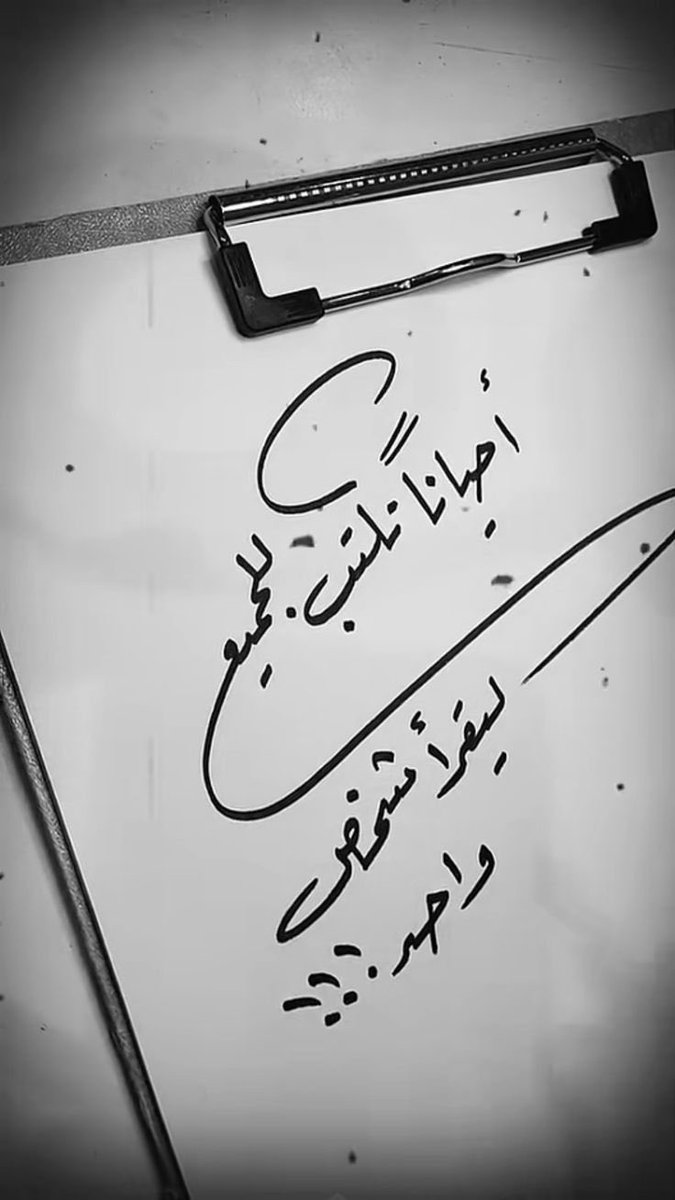 أحيانًا نكتب للجميع
ليقرأ شخص
واحد . !!!